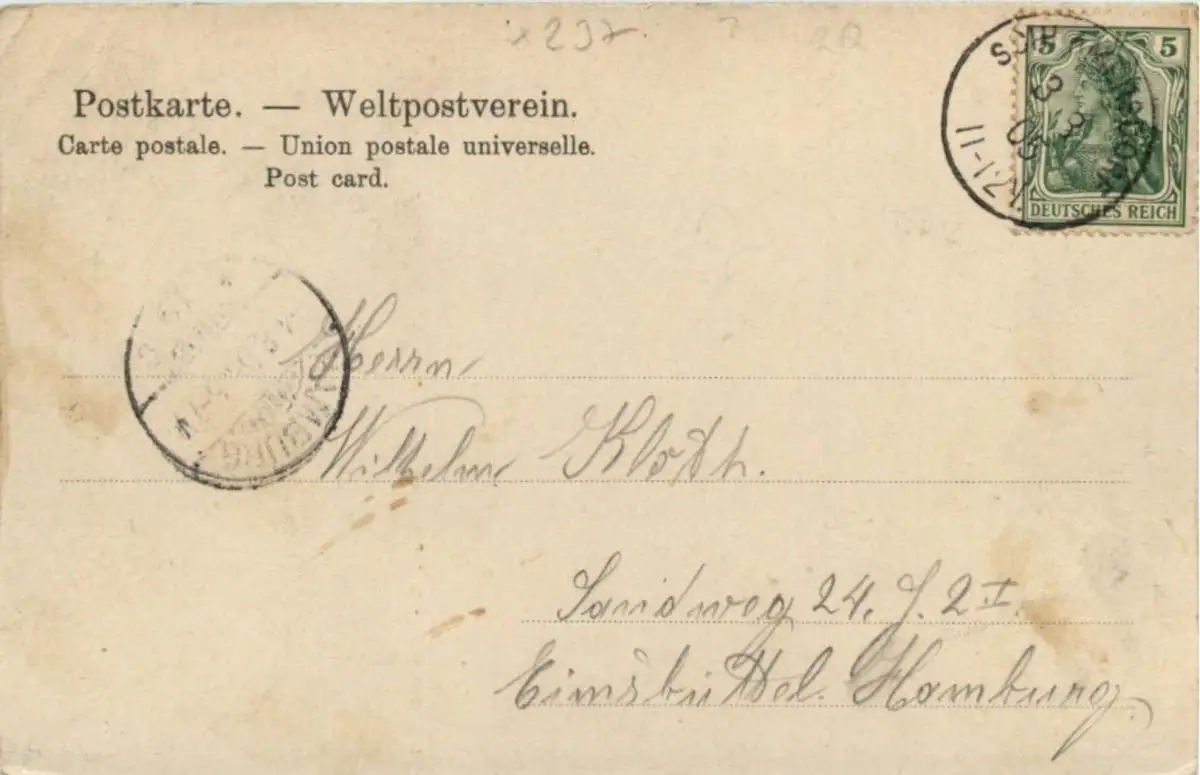 × 237.
Postkarte. — Weltpostverein.
Carte postale. — Union postale universelle.
Post card.
5 5
DEUTSCHES REICH
3 3 05
11-12
HAMBURG
Herrn
Wilhelm Kloth.
Sandweg 24. J. 2 I.
Eimsbüttel. Hamburg.